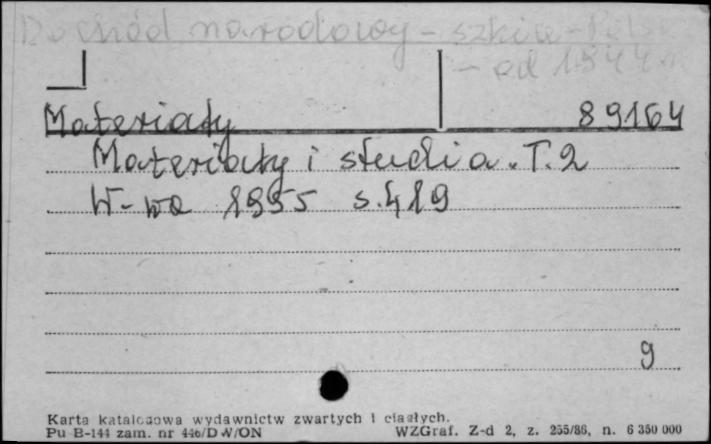 Dochód narodowy - szkice - Polska
- od 1944 r.
Materiały 89164
Materiały i studia. T. 2
W-wa 1955 s. 419
9
Karta katalogowa wydawnictw zwartych i ciągłych.
Pu B-144 zam. nr 446/D W/ON WZGraf. Z-d 2, z. 255/86, n. 6 350 000